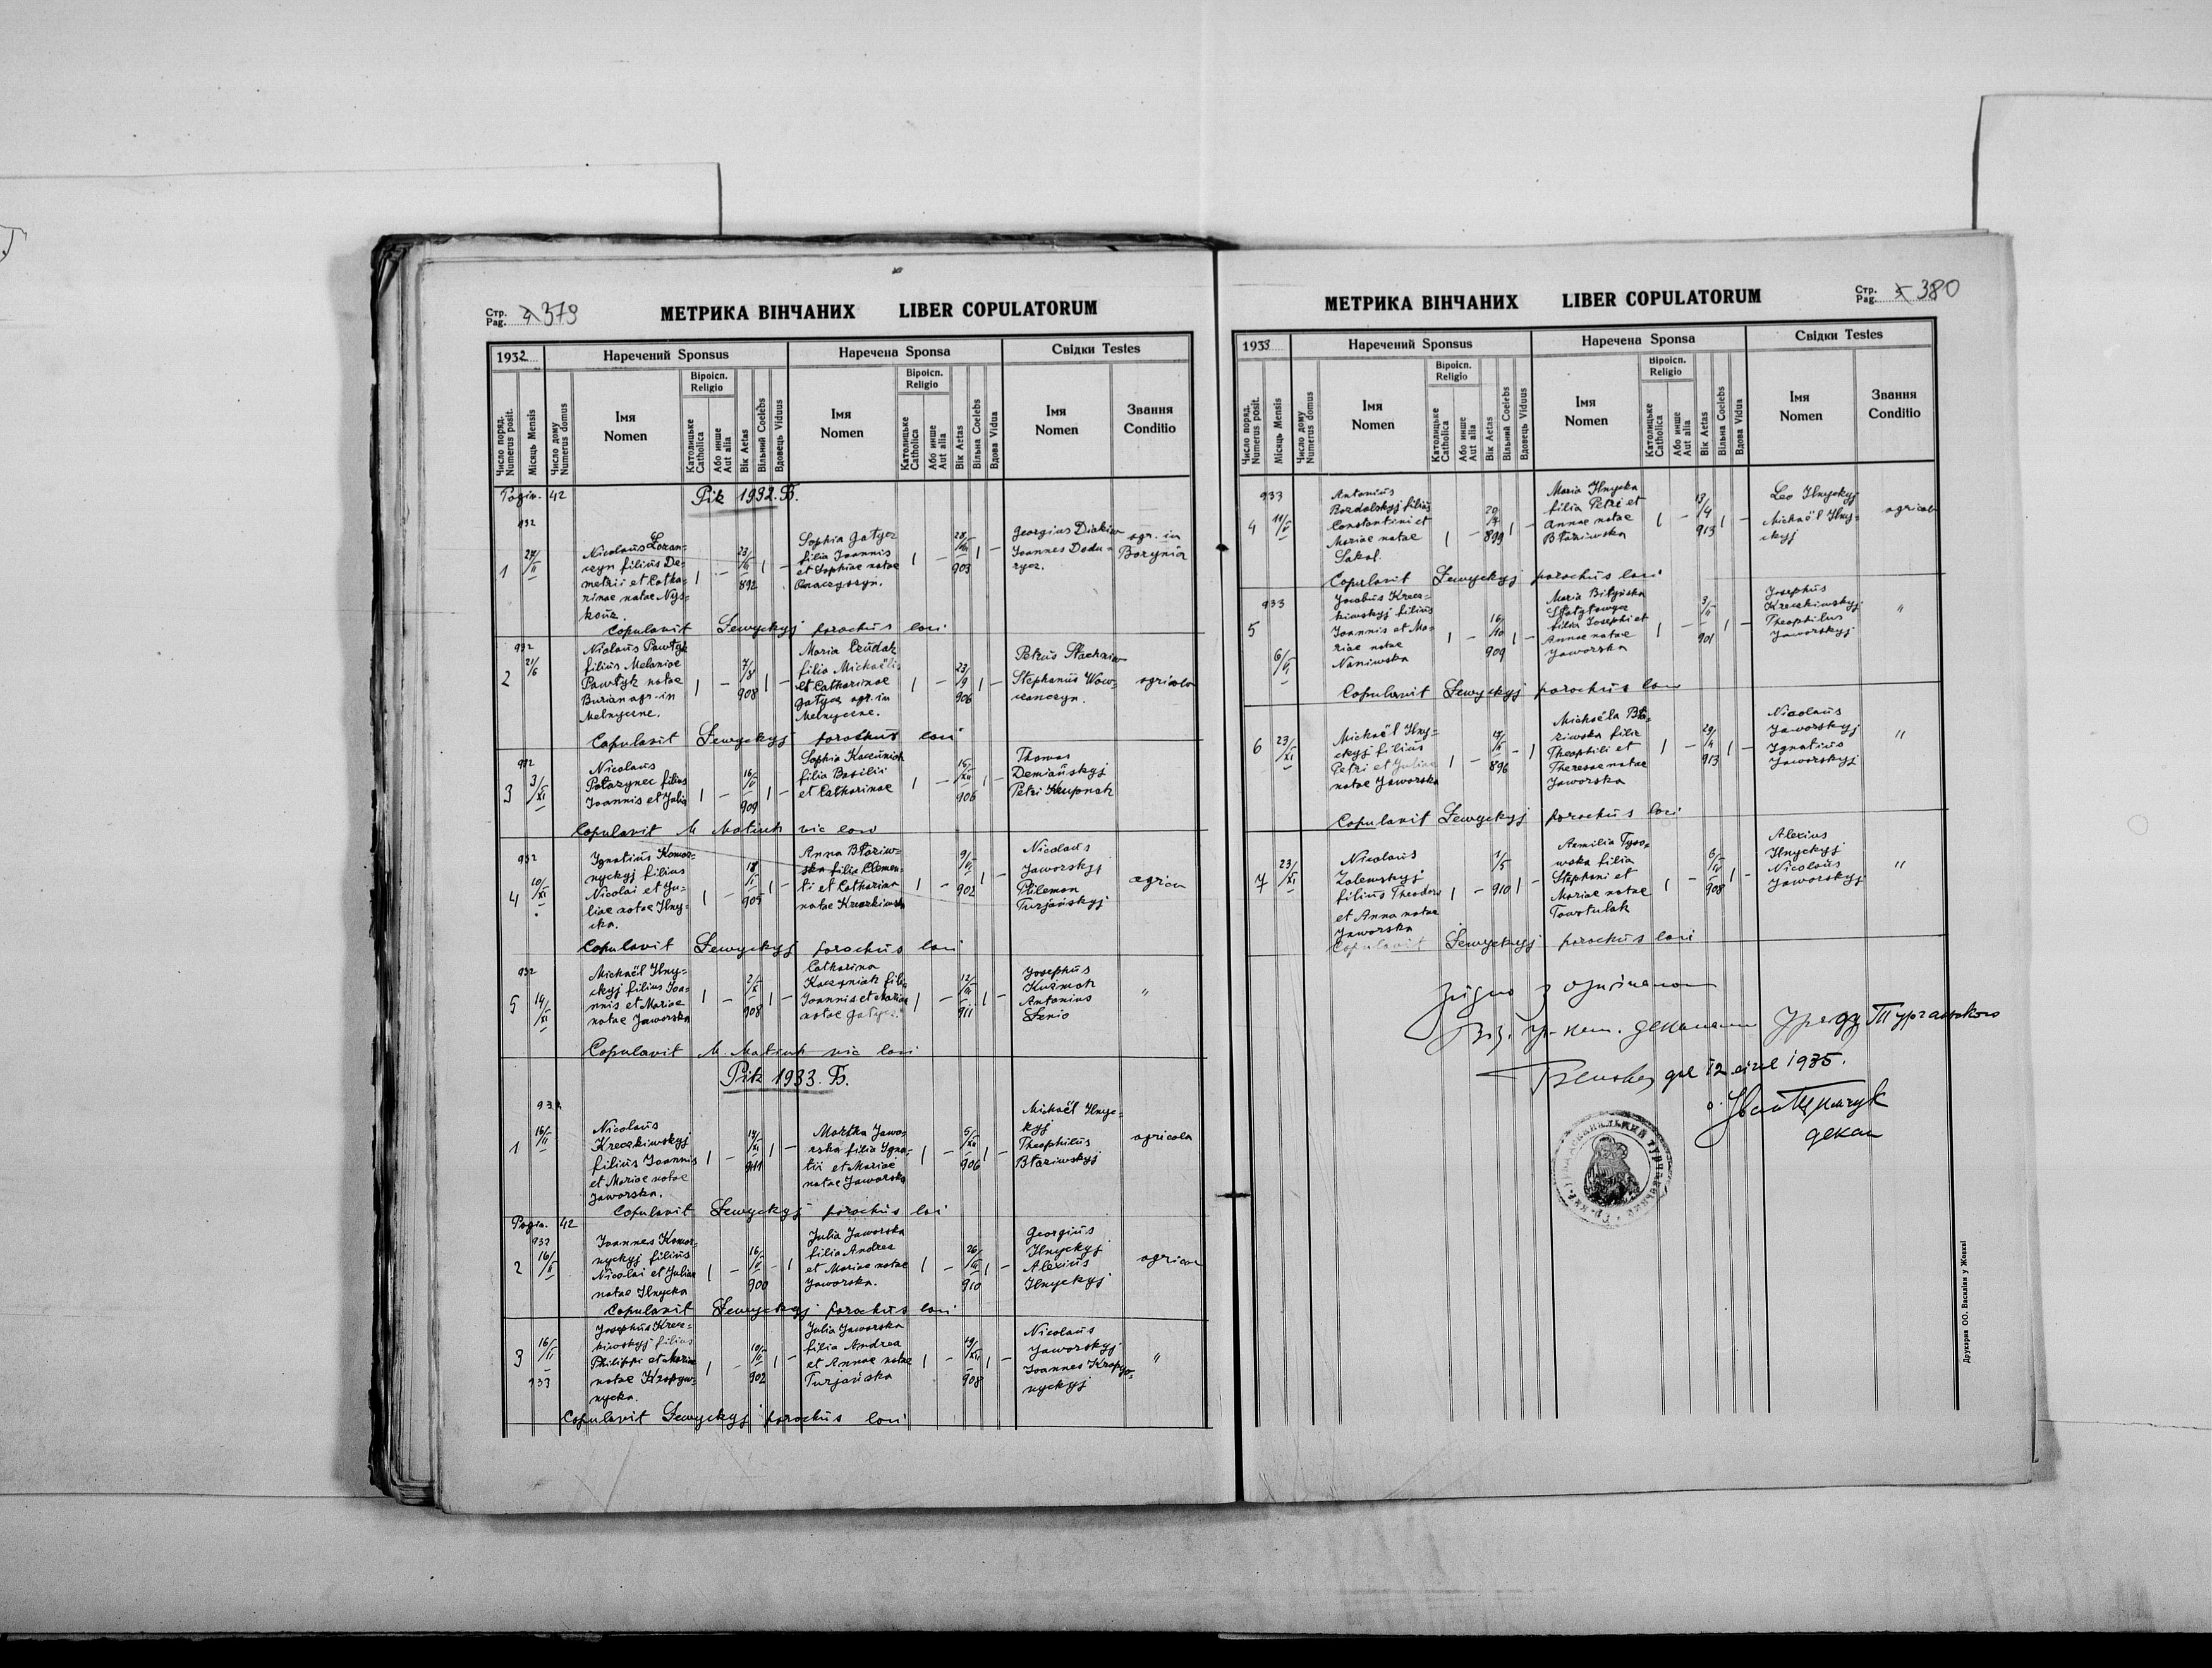 Стр. Pag. 379
МЕТРИКА ВІНЧАНИХ LIBER COPULATORUM
1932 Наречений Sponsus Наречена Sponsa Свідки Testes
Число поряд. Numerus posit.
Місяць Mensis
Число дому Numerus domus
Імя Nomen
Віроісп. Religio
Католицьке Catholica
Або инше Aut alia
Вік Aetas
Вільний Coelebs
Вдовець Viduus
Імя Nomen
Віроісп. Religio
Католицьке Catholica
Або инше Aut alia
Вік Aetas
Вільна Coelebs
Вдова Vidua
Імя Nomen
Звання Conditio
42 Рік 1932. Б.
932
1
Nicolaus
filius De-
metrii et Catha-
rinae natae Nys-
23/ 892
Sophia Gatycz
filia Joannis
et Sophiae natae
28/ 903
Georgius Diakiw
Joannes Dodu-
rycz.
agr. in
Borynia
Copulavit Lewyckyj parochus loci
932
2 21/6
Nicolaus Pawłyk
filius Melaniae
Pawłyk natae
Burian agr. in
Melnyczne.
7/8 908
Maria
filia Michaëlis
et Catharinae
Gatycz agr. in
Melnyczne.
23/9 906
Petrus
Stephanus Wow-
czanczyn.
agricola
Copulavit Lewyckyj parochus loci
932
3 3/XI
Nicolaus
Potazynec filius
Joannis et Julia
16/ 909
Sophia
filia Basilii
et Catharinae
15/XII 906
Thomas
Demiańskyj
Petri Krupnak
Copulavit M vic loci
932
4 10/XI
Ignatius Komar-
nyckyj filius
Nicolai et Ju-
liae natae Ilny-
cka.
18/ 905
Anna Błaziw-
ska filia Clemen-
ti et Catharina
natae
9/ 902
Nicolaus
Jaworskyj
Philemon
Turjańskyj
agricola
Copulavit Lewyckyj parochus loci
932
5 14/XI
Michaël Ilny-
ckyj filius Joa-
nnis et Mariae
natae Jaworska
2/X 908
Catharina
filia
Joannis et Mariae
natae Gatycz.
12/ 911
Josephus
Kuźmak
Antonius
Senio
"
Copulavit M. vic loci
Рік 1933. Б.
1 16/II
Nicolaus
Kreczkiwskyj
filius Joannis
et Mariae natae
Jaworska.
14/XI 911
Martha Jawo-
rska filia Igna-
tii et Mariae
natae Jaworska
5/XII 906
Michaël Ilnyc-
kyj
Theophilus
Błaziwskyj
agricola
Copulavit Lewyckyj parochus loci
42
933
2 16/II
Joannes Komar-
nyckyj filius
Nicolai et Juliae
natae Ilnycka
16/ 900
Julia Jaworska
filia Andrea
et Mariae natae
Jaworska.
26/ 910
Georgius
Ilnyckyj
Alexius
Ilnyckyj
agricola
Copulavit Lewyckyj parochus loci
3 16/II 933
Josephus Krecz-
kiwskyj filius
Philippi et Mariae
natae Kropyw-
nycka.
10/ 902
Julia Jaworska
filia Andrea
et Annae natae
Turjańska
19/XII 908
Nicolaus
Jaworskyj
Joannes Kropyw-
nyckyj
"
Copulavit Lewyckyj parochus loci
МЕТРИКА ВІНЧАНИХ LIBER COPULATORUM
Стр. Pag. 380
1933 Наречений Sponsus Наречена Sponsa Свідки Testes
Число поряд. Numerus posit.
Місяць Mensis
Число дому Numerus domus
Імя Nomen
Віроісп. Religio
Католицьке Catholica
Або инше Aut alia
Вік Aetas
Вільний Coelebs
Вдовець Viduus
Імя Nomen
Віроісп. Religio
Католицьке Catholica
Або инше Aut alia
Вік Aetas
Вільна Coelebs
Вдова Vidua
Імя Nomen
Звання Conditio
933
4 11/V
Antonius
Rozdolskyj filius
Constantini et
Mariae natae
Sokal.
20/ 899
Maria Ilnycka
filia Petri et
Annae natae
Błaziwska
13/4 913
Leo Ilnyckyj
Michaël Ilny-
ckyj
agricola
Copulavit Lewyckyj parochus loci
933
5 6/VI
Jacobus Krecz-
kiwskyj filius
Joannis et Ma-
riae natae
Naniwska
16/10 909
Maria Bilyńska
filia Josephi et
Annae natae
Jaworska
3/II 901
Josephus
Kreczkiwskyj
Theophilus
Jaworskyj
"
Copulavit Lewyckyj parochus loci
6 23/XI
Michaël Ilny-
ckyj filius
Petri et Juliae
natae Jaworska
896
Michaëla Bła-
ziwska filia
Theophili et
Theresae natae
Jaworska
29/4 913
Nicolaus
Jaworskyj
Ignatius
Jaworskyj
"
Copulavit Lewyckyj parochus loci
7 23/XI
Nicolaus
Zalewskyj
filius Theodori
et Anna natae
Jaworska
1/5 910
Aemilia Tyso-
wska filia
Stephani et
Mariae natae
Towstulak
6/ 908
Alexius
Ilnyckyj
Nicolaus
Jaworskyj
"
Copulavit Lewyckyj parochus loci
Згідно з оригіналом
Від гр-кат. деканального Уряду Турчанського
дня 12 січня 1935.
о. Іван
декан
Друкарня ОО. Василіян у Жовкві